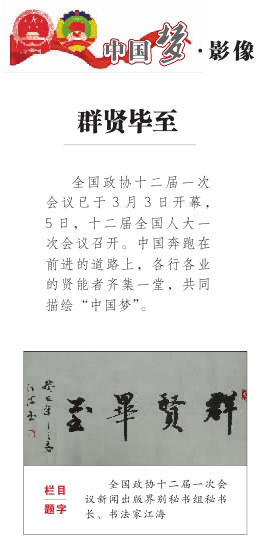 中国梦·影像
群贤毕至
全国政协十二届一次
会议已于3月3日开幕，
5日，十二届全国人大一
次会议召开。中国奔跑在
前进的道路上，各行各业
的贤能者齐集一堂，共同
描绘“中国梦”。
群賢畢至
栏目
题字
全国政协十二届一次会
议新闻出版界别秘书组秘书
长、书法家江海